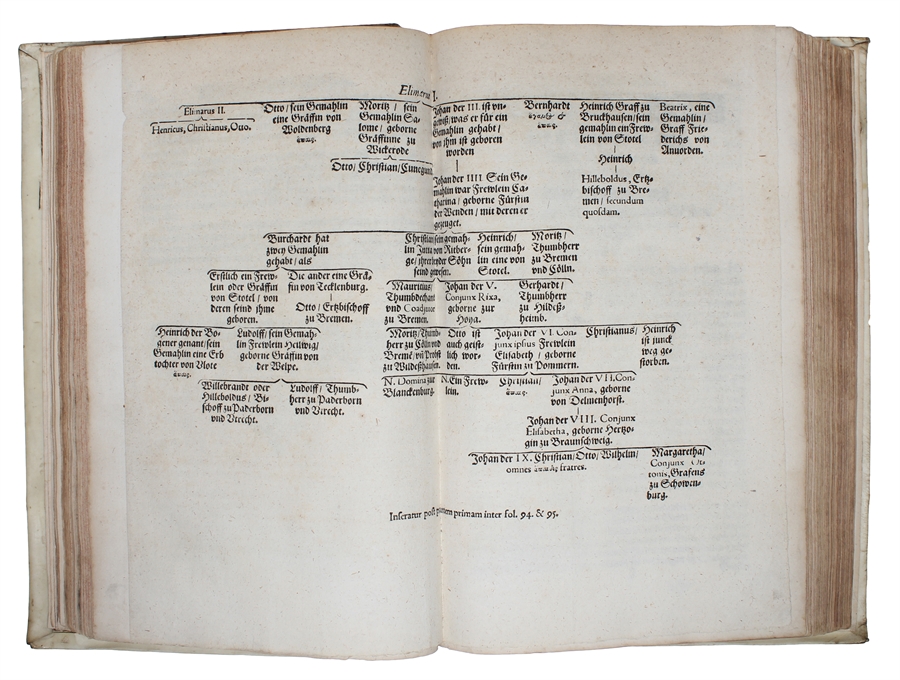 Elimari I.
Elimarus II.
Henricus, Christianus, Otto.
Otto/ sein Gemahlin
eine Gräffin von
Woldenberg
ἄπαις.
Moritz/ sein
Gemahlin Sa-
lome/ geborne
Gräffinne zu
Wickerode
Otto/ Christian/ Cunegund
Johan der III. ist vn-
gewiß/ was er für ein
Gemahlin gehabt/
von ihm ist geboren
worden
Johan der IIII. Sein Ge-
mahlin war Frewlein Ca-
tharina/ geborne Fürstin
der Wenden/ mit deren er
gezeuget.
Bernhardt
ἄπαις.
Heinrich Graff zu
Bruckhausen/ sein
gemahlin ein Frew-
lein von Stotel
Heinrich
Hilleboldus, Ertz-
bischoff zu Bre-
men/ secundum
quosdam.
Beatrix, eine
Gemahlin/
Graff Frie-
derichs von
Anuorden.
Burchardt hat
zwey Gemahlin
gehabt/ als
Christian sein gemah-
lin Jutta von Ritber-
ge/ ihrer Söhn
seind gewesen.
Heinrich/
sein gemah-
lin eine von
Stotel.
Moritz/
Thumbherr
zu Bremen
vnd Cölln.
Erstlich ein Frew-
lein oder Gräffin
von Stotel/ von
deren seind jhme
geboren.
Die ander eine Grä-
fin von Tecklenburg.
Otto/ Ertzbischoff
zu Bremen.
Mauritius/
Thumbdechant
vnd Coadjutor
zu Bremen.
Johan der V.
Conjunx Rixa,
geborne zur
Hoya.
Gerhardt/
Thumbherr
zu Hildeß-
heimb.
Heinrich der Bo-
gener genant/ sein
Gemahlin eine Erb
tochter von Vlote
ἄπαις.
Ludolff/ sein Gemah-
lin Frewlein Hellwig/
geborne Gräffin von
der Welpe.
Moritz/ Thumb-
herr zu Cölln vnd
Bremē/ vñ Probst
zu Wildeßhausen.
Otto ist
auch geist-
lich wor-
den.
Johan der VI. Con-
junx ipsius Frewlein
Elisabeth/ geborne
Fürstin zu Pommern.
Christianus/
Heinrich
ist junck
weg ge-
storben.
Willebrandt oder
Hilleboldus/ Bi-
schoff zu Paderborn
vnd Vtrecht.
Ludolff/ Thumb-
herr zu Paderborn
vnd Vtrecht.
N. Domina zur
Blanckenburg.
N. Ein Frew-
lein.
Christian/
ἄπαις.
Johan der VII. Con-
junx Anna, geborne
von Delmenhorst.
Johan der VIII. Conjunx
Elisabetha, geborne Hertzo-
gin zu Braunschweig.
Johan der IX. Christian/ Otto/ Wilhelm/
omnes ἄπαιδες fratres.
Margaretha/
Conjunx Ot-
tonis, Grafens
zu Schowen-
burg.
Inseratur post partem primam inter fol. 94. & 95.